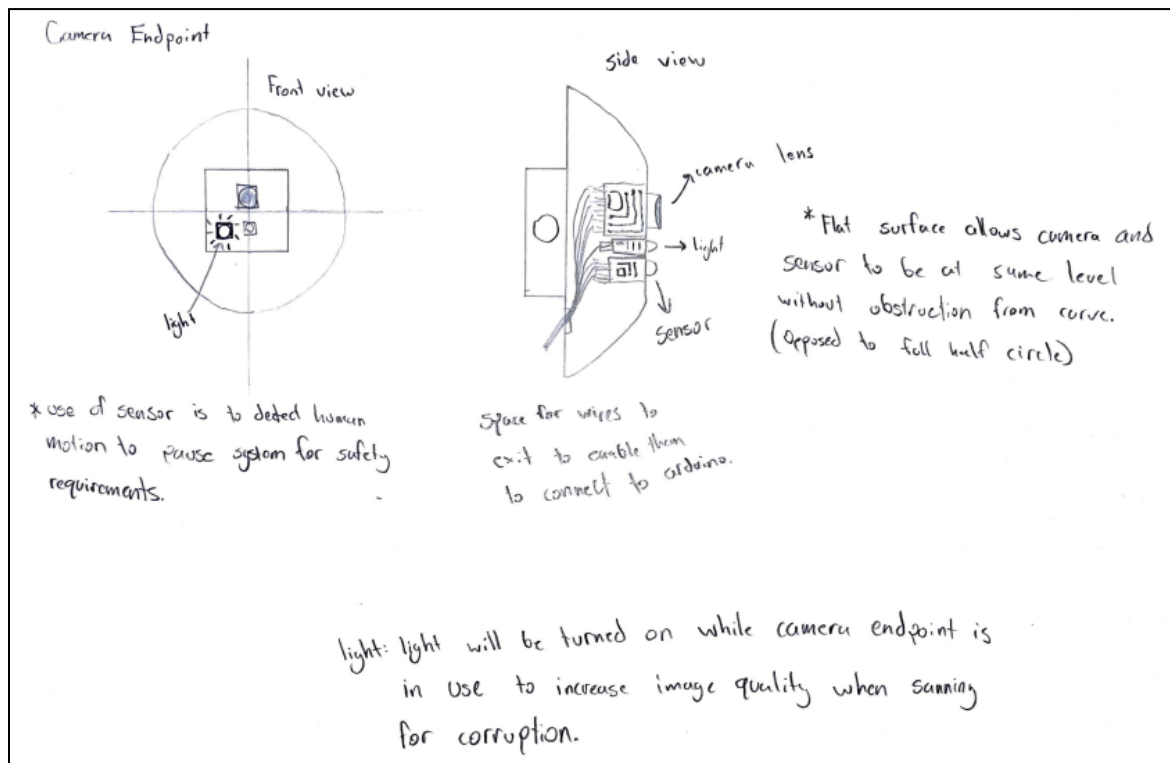 Camera Endpoint
Front view
light
* use of sensor is to detect human
motion to pause system for safety
requirements.
side view
camera lens
light
sensor
space for wires to
exit to enable them
to connect to arduino.
* Flat surface allows camera and
sensor to be at same level
without obstruction from curve.
(Opposed to full half circle)
light: light will be turned on while camera endpoint is
in use to increase image quality when sanning
for corruption.